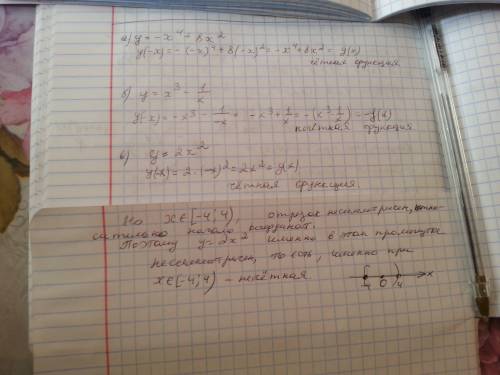 а) y = -x⁴ + 8x²
y(-x) = -(-x)⁴ + 8(-x)² = -x⁴ + 8x² = y(x)
чётная функция
б) y = x³ - 1/x
y(-x) = -x³ - 1/-x = -x³ + 1/x = -(x³ - 1/x) = -y(x)
нечётная функция
в) y = 2x²
y(-x) = 2·(-x)² = 2x² = y(x)
чётная функция.
Но x∈[-4; 4), отрезок несимметричен, отно-
сительно начало координат.
Поэтому y = 2x² именно в этом промежутке
несимметричен, то есть, именно при
x∈[-4; 4) - нечётная
-4 0 4 x